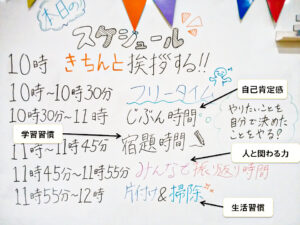 本日の
スケジュール
10時 きちんと挨拶する!!
10時~10時30分 フリータイム
10時30分~11時 じぶん時間
11時~11時45分 宿題時間
11時45分~11時55分 みんなで振り返り時間
11時55分~12時 片付け&掃除
やりたいことを
自分で決めた
ことをやる?
自己肯定感
学習習慣
人と関わる力
生活習慣